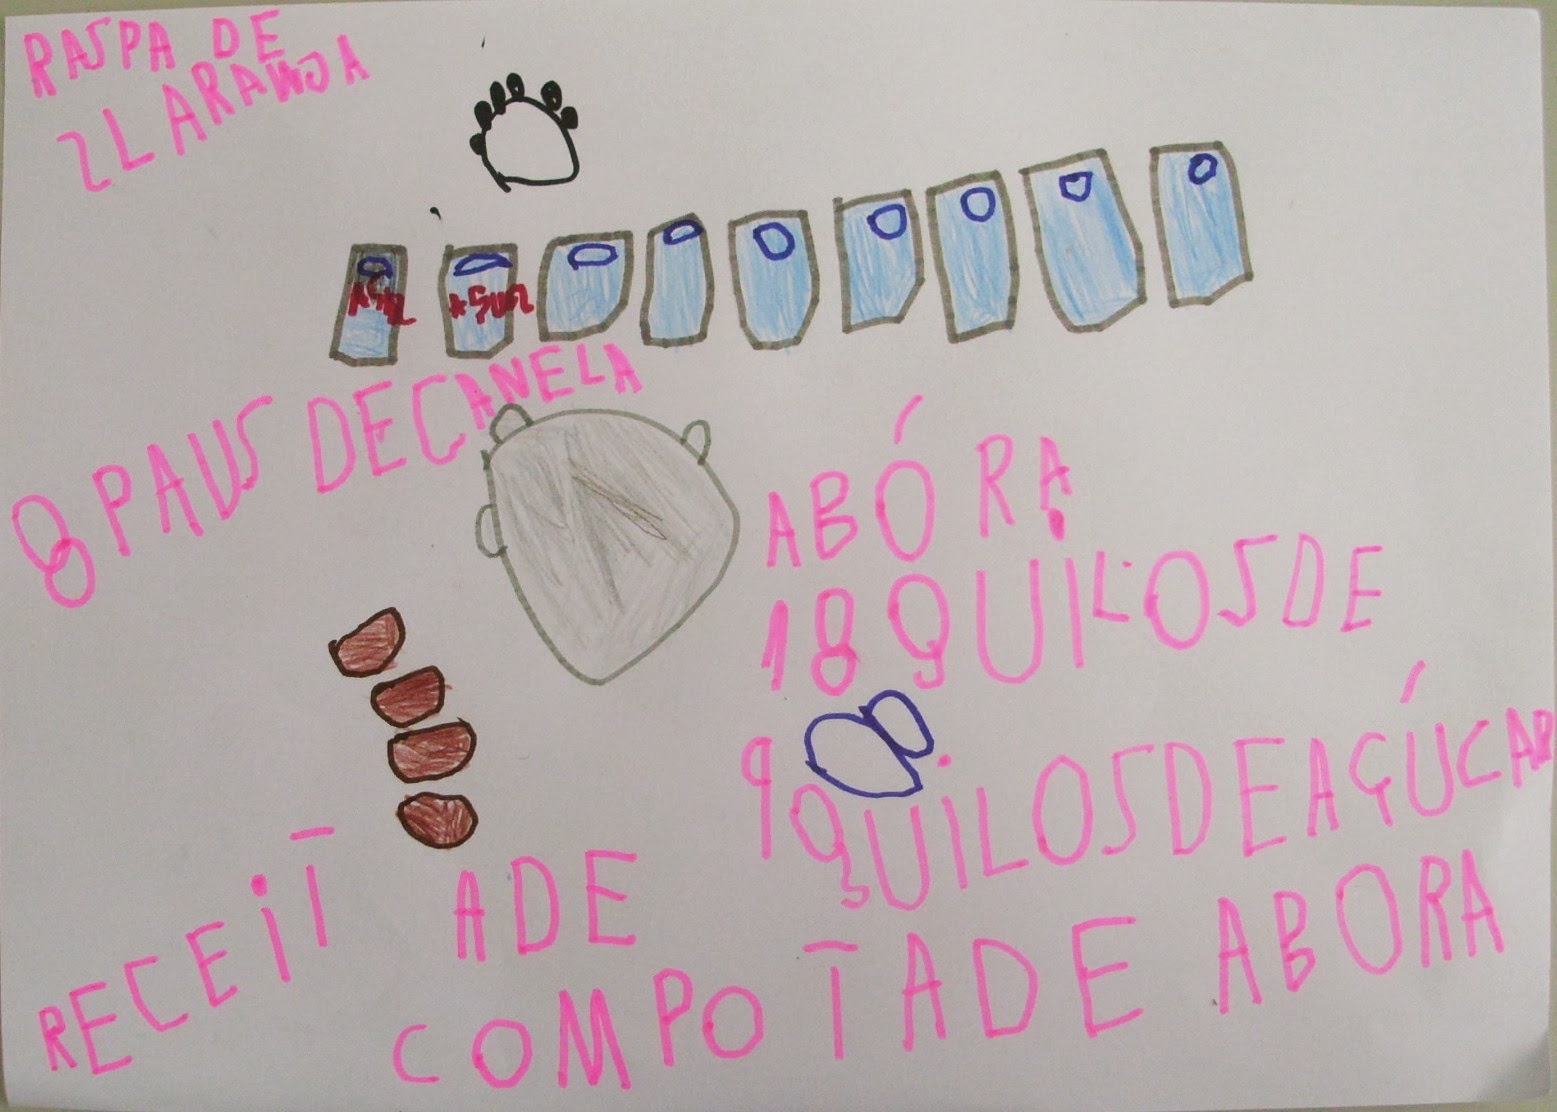 RASPA DE
2 LARANJA
ASUR
8 PAUS DE CANELA
ABÓRA
18 QUILOS DE
9 QUILOS DE AÇÚCAR
RECEITA DE
COMPOTA DE ABORA